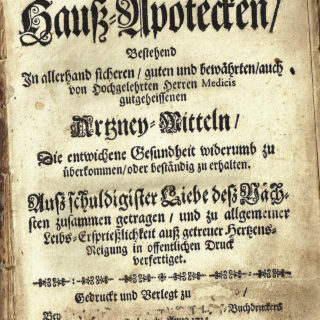 Hauß-Apotecken/
Bestehend
In allerhand sicheren/ guten und bewährten/ auch
von Hochgelehrten Herren Medicis
gutgeheissenen
Artzney-Mitteln/
Die entwichene Gesundheit widerumb zu
überkommen/ oder beständig zu erhalten.
Auß schuldigister Liebe deß Näch-
sten zusammen getragen/ und zu allgemeiner
Leibs-Ersprießlichkeit auß getreuer Hertzens-
Neigung in offentlichen Druck
verfertiget.
Gedruckt und Verlegt zu
Bey Buchdruckers